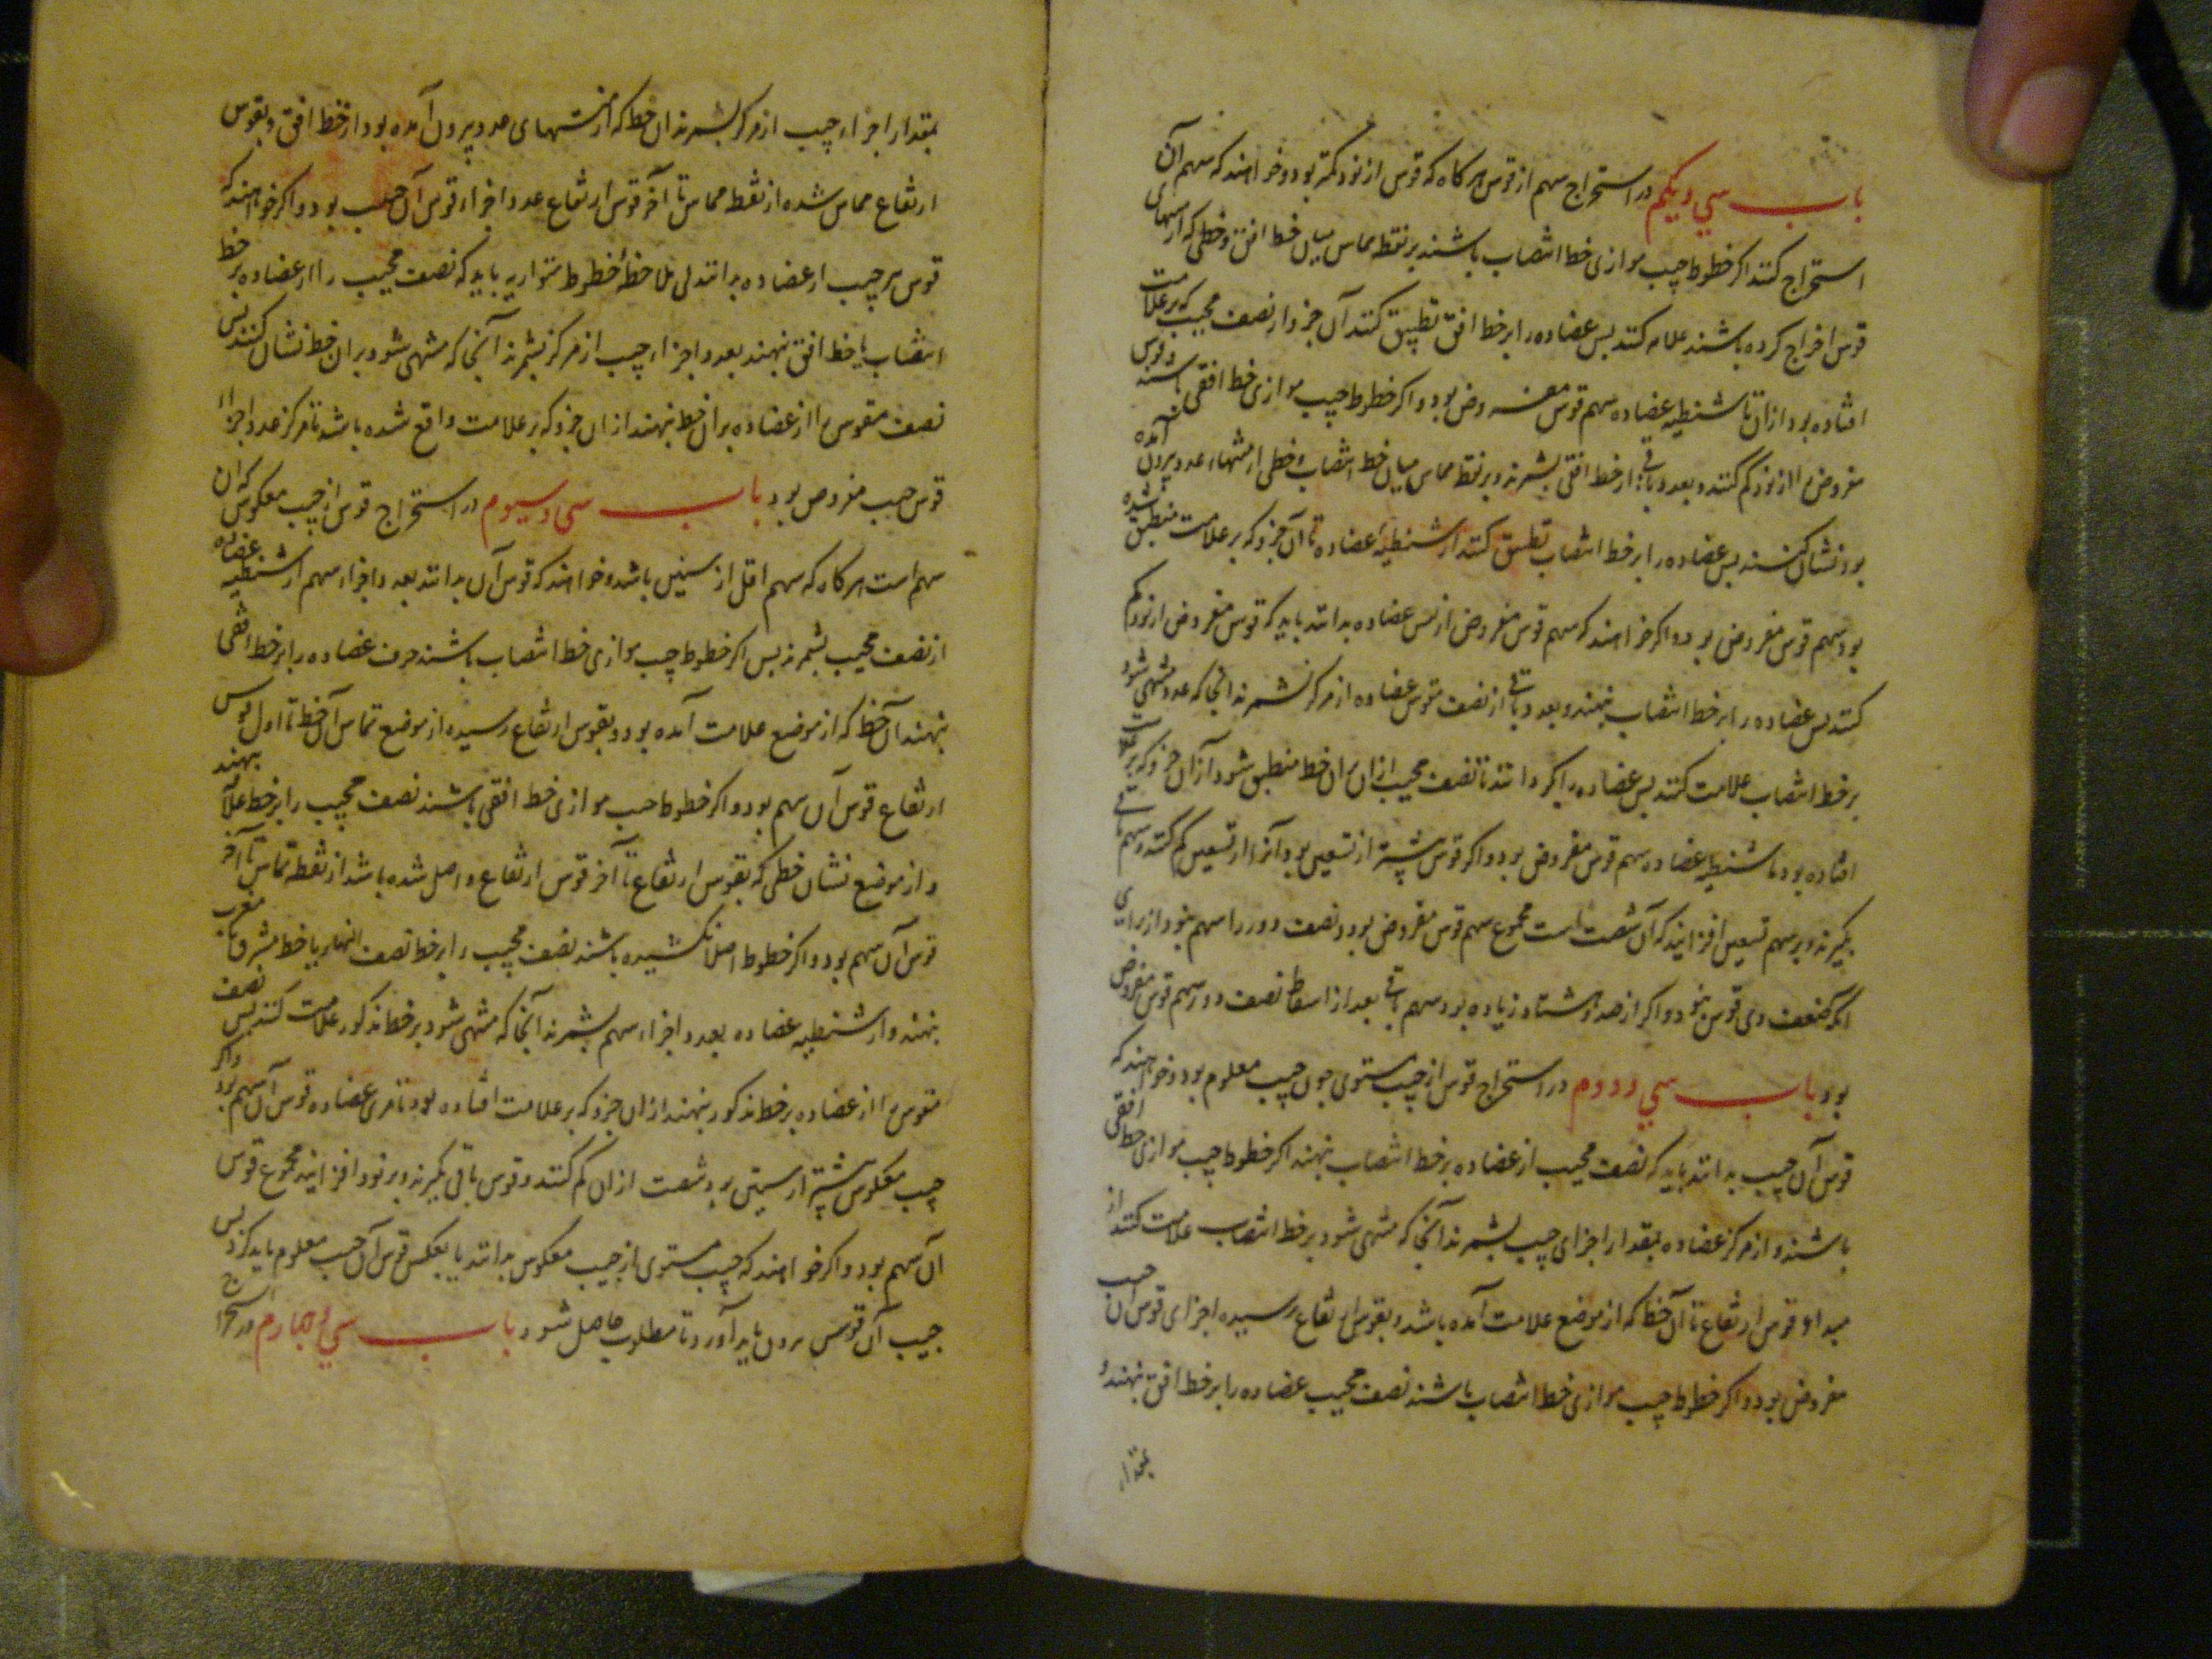 باب سي ويكم در استخراج سهم از قوس هر كاه كه قوس از نود كمتر بود و خواهند كه سهم آن
استخراج كنند اكر خطوط جيب موازى خط انتصاب باشند بر نقطه مماس ميان خط افق و خطى كه از سهاى
قوس اخراج كرده باشند علامه كنند پس عضاده را بر خط افق تطبيق كنند آن جزو از نصف مجيب كه بر علامت
افتاده بود از ان تا شنطيه عضاده سهم قوس مفروض بود و اكر خطوط جيب موازى خط افقى باشند و قوس
مفروض را از نود كم كنند و بعدد باقى از خط افق بشمرند و بر نقطه مماس ميان خط انتصاب و خطى از منتهاء عدد بيرون آمده
بود نشان كنند پس عضاده را بر خط انتصاب تطبيق كنند از شنطيه عضاده تا آن جزو كه بر علامت منطبق شده
بود سهم قوس مفروض بود و اكر خواهند كه سهم قوس مفروض از نفس عضاده بدانند بايد كه قوس مفروض از نود كم
كنند پس عضاده را بر خط انتصاب نهند و بعدد باقى از نصف مقوس عضاده از مركز بشمرند آنجا كه عدد منتهى شود
بر خط انتصاب علامت كنند پس عضاده را بكردانند تا نصف مجيب از ان بران خط منطبق شود از آن جزو كه بر علامت
افتاده بود تا شنطيه عضاده سهم قوس مفروض بود و اكر قوس بيشتر از تسعين بود آنرا از تسعين كم كنند و سهم باقى
بكيرند و بر سهم تسعين افزايند كه آن شصت است مجموع سهم قوس مفروض بود و نصف دور را سهم بنود از براى
آنكه ضعف وى قوس بنود و اكر از صد و هشتاد زياده بود سهم باقى بعد از اسقاط نصف دور سهم قوس مفروض
بود باب سي و دوم در استخراج قوس از جيب مستوى چون جيب معلوم بود و خواهند كه
قوس آن جيب بدانند بايد كه نصف مجيب از عضاده بر خط انتصاب نهند اكر خطوط جيب موازى خط افقى
باشند و از مركز عضاده بمقدار اجزاى جيب بشمرند آنجا كه منتهى شود بر خط انتصاب علامت كنند از
مبداو قوس ارتفاع تا آن خط كه از موضع علامت آمده باشد و بقوس ارتفاع رسيده اجزاى قوس آن جيب
مفروض بود و اكر خطوط جيب موازى خط انتصاب باشند نصف مجيب عضاده را بر خط افق نهند و
بمقدار
بمقدار اجزاء جيب از مركز بشمرند ان خط كه از منتهاى عدد بيرون آمده بود از خط افق و بقوس
ارتفاع مماس شده از نقطه مماس تا آخر قوس ارتفاع عدد اجزاء قوس آن جيب بود و اكر خواهند كه
قوس هر جيب از عضاده بدانند بى ملاحظۀ خطوط متوازيه بايد كه نصف مجيب را از عضاده بر خط
انتصاب يا خط افق نهند بعدد اجزاء جيب از مركز بشمرند آنجا كه منتهى شود بران خط نشان كنند پس
نصف مقوس را از عضاده بران خط نهند از ان جزو كه بر علامت واقع شده باشد تا مركز عدد اجزاء
قوس جيب مفروض بود باب سى و سيوم در استخراج قوس از جيب معكوس كه ان
سهم است هر كاه كه سهم اقل از ستين باشد و خواهند كه قوس آن بدانند بعدد اجزاء سهم از شنطيه عضاده
از نصف مجيب بشمرند پس اكر خطوط جيب موازى خط انتصاب باشند حرف عضاده را بر خط افقى
نهند آن خط كه از موضع علامت آمده بود و بقوس ارتفاع رسيده از موضع تماس آن خط تا اول قوس
ارتفاع قوس آن سهم بود و اكر خطوط جيب موازى خط افقى باشند نصف مجيب را بر خط علاقه نهند
و از موضع نشان خطى كه بقوس ارتفاع تا آخر قوس ارتفاع واصل شده باشد از نقطه تماس تا آخر
قوس آن سهم بود و اكر خطوط اصلا نكشيده باشند نصف مجيب را بر خط نصف النهار يا خط مشرق و مغرب
نهند و از شنطيه عضاده بعدد اجزاء سهم بشمرند آنجا كه منتهى شود بر خط مذكور علامت كنند پس نصف
مقوس را از عضاده بر خط مذكور نهند از ان جزو كه بر علامت افتاده بود تا مرى عضاده قوس آن سهم بود و اكر
جيب معكوس بيشتر از ستين بود شصت از ان كم كنند و قوس باقى بكيرند و بر نود افزايند مجموع قوس
آن سهم بود و اكر خواهند كه جيب مستوى از جيب معكوس بدانند يا بعكس قوس آن جيب معلوم بايد كرد پس
جيب آن قوس برون بايد آورد تا مطلوب حاصل شود باب سي و چهارم در استخراج